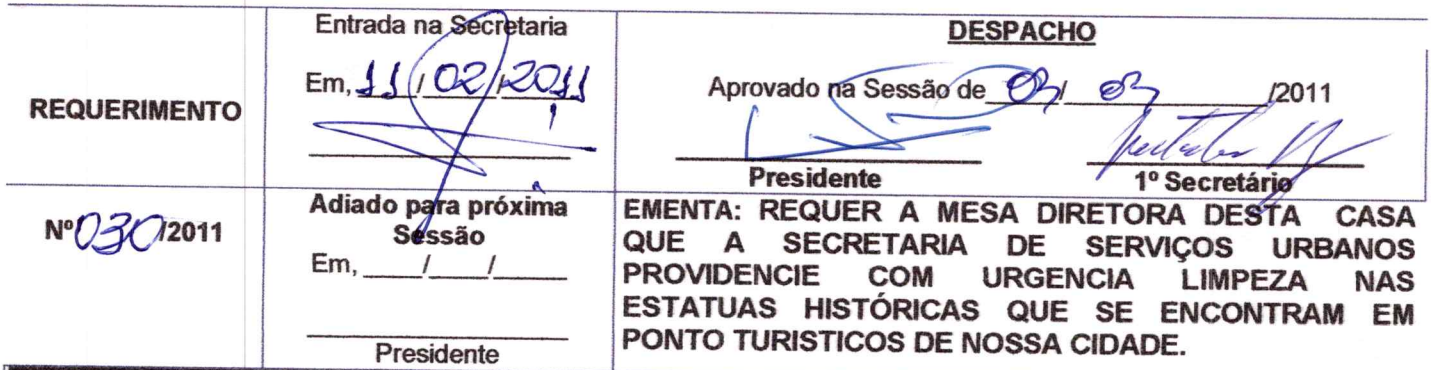 REQUERIMENTO
Nº 030/2011
Entrada na Secretaria
Em, 11/02/2011
Adiado para próxima
Sessão
Em, ____/____/____
Presidente
DESPACHO
Aprovado na Sessão de 03/ 03 /2011
Presidente
1º Secretário
EMENTA: REQUER A MESA DIRETORA DESTA CASA
QUE A SECRETARIA DE SERVIÇOS URBANOS
PROVIDENCIE COM URGENCIA LIMPEZA NAS
ESTATUAS HISTÓRICAS QUE SE ENCONTRAM EM
PONTO TURISTICOS DE NOSSA CIDADE.